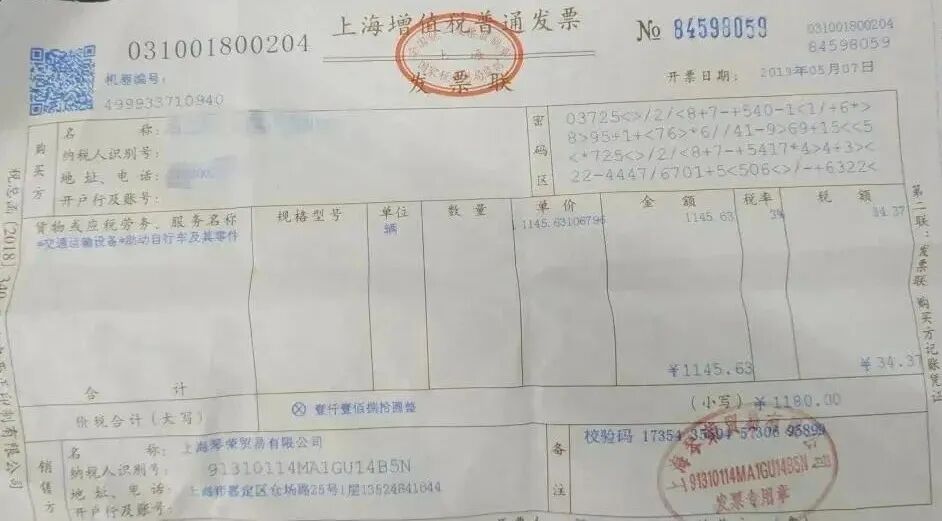 031001800204
上海增值税普通发票
发票联
№ 84598059
031001800204
84598059
机器编号:
499933710940
开票日期: 2019年05月07日
购买方
名 称:
纳税人识别号:
地 址、电 话:
开户行及账号:
密码区
03725<>/2/<8+7-+540-1<1/+6*>
8>95+1+<76>*6//41-9>69+15<<5
<*725<>/2/<8+7-+5417*4>4+3>
22-4447/6701+5<506<>/-+6322<
货物或应税劳务、服务名称 规格型号 单位 数 量 单 价 金 额 税率 税 额
*交通运输设备*助动自行车及其零件 辆 1145.63106796 1145.63 3% 34.37
合 计 ¥1145.63 ¥34.37
价税合计(大写) ⊗ 壹仟壹佰捌拾圆整 (小写) ¥1180.00
销售方
名 称: 上海琴荣贸易有限公司
纳税人识别号: 91310114MA1GU14B5N
地 址、电 话: 上海市嘉定区仓场路25号1层13524841644
开户行及账号:
备注
校验码 17354 57306 95899
91310114MA1GU14B5N
发票专用章
第二联:发票联 购买方记账凭证
税总函〔2018〕